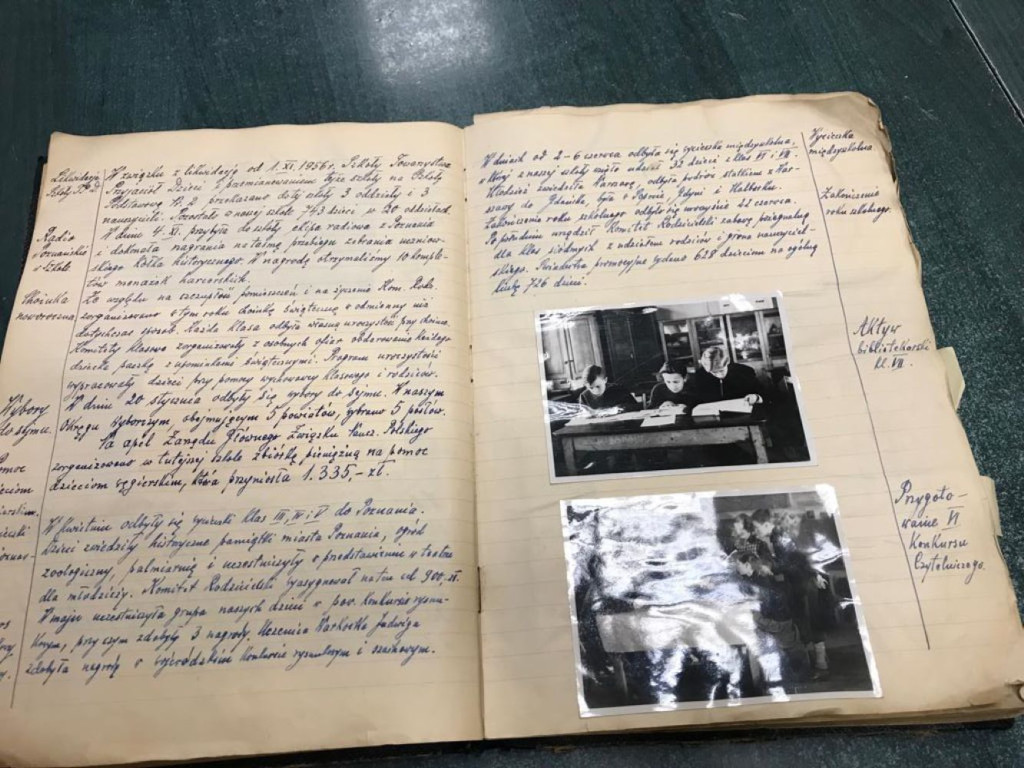 Likwidacja
Szkoły T.P.D.
W związku z likwidacją od 1.XI.1956 r. Szkoły Towarzystwa
Przyjaciół Dzieci i przemianowaniem tejże szkoły na Szkołę
Podstawową Nr 2 przekazano do tej szkoły 3 oddziały i 3
nauczycieli. Pozostało w naszej szkole 743 dzieci w 20 oddziałach.
Radio
Poznańskie
w Szkole
W dniu 4.XI. przybyła do szkoły ekipa radiowa z Poznania
i dokonała nagrania na taśmę przebiegu zebrania uczniow-
skiego Kółka historycznego. W nagrodę otrzymaliśmy 10 komple-
tów menażek harcerskich.
Choinka
noworoczna
Ze względu na szczupłość pomieszczeń i na życzenie Kom. Rodz.
zorganizowano w tym roku choinkę świąteczną w odmienny niż
dotychczas sposób. Każda klasa odbyła własną uroczystość przy choince.
Komitety klasowe zorganizowały z osobnych ofiar obdarowanie każdego
dziecka paczką z upominkami świątecznymi. Program uroczystości
wypracowały dzieci przy pomocy wychowawcy klasowego i rodziców.
Wybory
do sejmu.
W dniu 20 stycznia odbyły się wybory do Sejmu. W naszym
Okręgu Wyborczym obejmującym 5 powiatów, wybrano 5 posłów.
Na apel Zarządu Głównego Związku Naucz. Polskiego
zorganizowano w tutejszej szkole zbiórkę pieniężną na pomoc
dzieciom węgierskim, która przyniosła 1.335,- zł.
W kwietniu odbyły się wycieczki klas III, IV i V do Poznania.
Dzieci zwiedziły historyczne pamiątki miasta Poznania, ogród
zoologiczny, palmiarnię i uczestniczyły w przedstawieniu w teatrze
dla młodzieży. Komitet Rodzicielski wyasygnował na ten cel 900,- zł.
W maju uczestniczyła grupa naszych dzieci w pow. konkursie rysun-
kowym, przy czym zdobyły 3 nagrody. Uczennica Jadwiga
zdobyła nagrodę w wojewódzkim konkursie rysunkowym i szachowym.
W dniach od 2-6 czerwca odbyła się wycieczka międzyszkolna,
w której z naszej szkoły wzięło udział 32 dzieci z klas VI i VII.
Młodzież zwiedziła Warszawę, odbyła podróż statkiem z War-
szawy do Gdańska, była w Sopocie, Gdyni i Malborku.
Wycieczka
międzyszkolna
Zakończenie roku szkolnego odbyło się uroczyście 22 czerwca.
Po południu urządził Komitet Rodzicielski zabawę pożegnalną
dla klas siódmych z udziałem rodziców i grona nauczyciel-
skiego. Świadectwa promocyjne wydano 628 dzieciom na ogólną
liczbę 726 dzieci.
Zakończenie
roku szkolnego.
Aktyw
bibliotekarski
kl. VII.
Przygoto-
wanie VI
Konkursu
Czytelniczego.